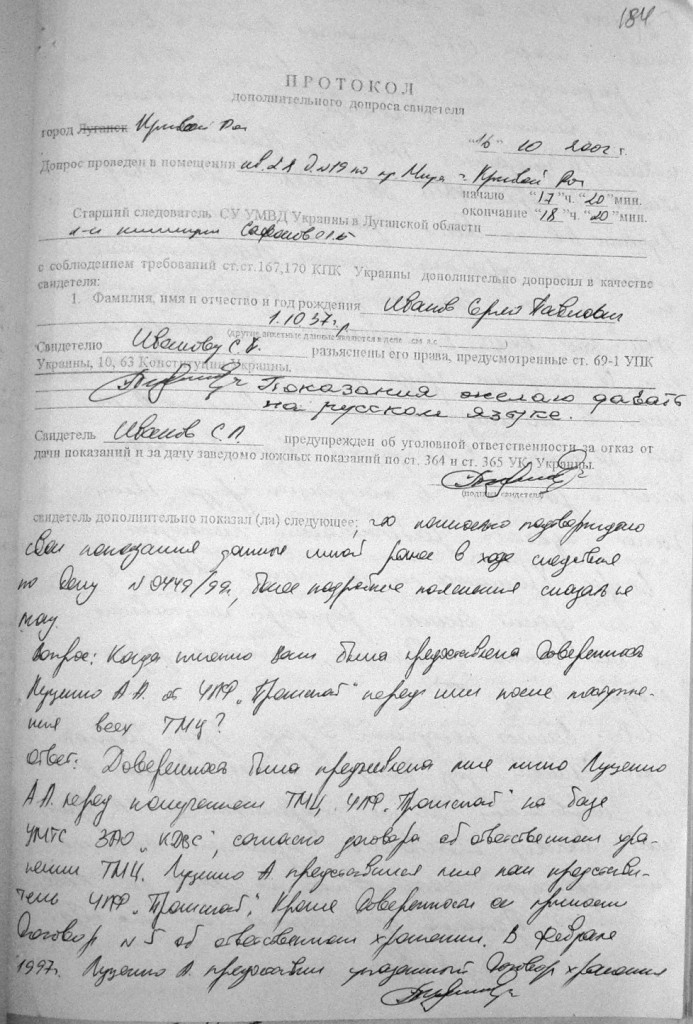 184
ПРОТОКОЛ
дополнительного допроса свидетеля
город Луганск Кривой Рог
"16" 10 2002 г.
Допрос проведен в помещении кв. 28 д. №19 по пр Мира г. Кривой Рог
начало "17" ч. "20" мин.
окончание "18" ч. "20" мин.
Старший следователь СУ УМВД Украины в Луганской области
л-т милиции Сафонов
с соблюдением требований ст.ст.167,170 КПК Украины дополнительно допросил в качестве
свидетеля:
1. Фамилия, имя и отчество и год рождения Иванов Павлович
1.10.37г.
(другие анкетные данные имеются в деле
Свидетелю Иванову С.П. разъяснены его права, предусмотренные ст. 69-1 УПК
Украины, 10, 63 Конституции Украины.
Показания желаю давать
на русском языке.
Свидетель Иванов С.П. предупрежден об уголовной ответственности за отказ от
дачи показаний и за дачу заведомо ложных показаний по ст. 364 и ст. 365 УК Украины.
(подпись свидетеля)
свидетель дополнительно показал (ла) следующее; что полностью подтверждаю
свои показания данные мной ранее в ходе следствия
по делу №0449/99г, более подробное пояснения сказать не
могу.
Вопрос: Когда именно Вам была предоставлена доверенность
Луценко А.А. от ЧПФ "Промстай" перед или после получе-
ния всех ТМЦ?
Ответ: Доверенность была предъявлена мне лично Луценко
А.А. перед получением ТМЦ ЧПФ "Промстай" на базе
УМТС ЗАО "КДВС", согласно договора об ответственном хра-
нении ТМЦ. Луценко А представился мне как представи-
тель ЧПФ "Промстай", Кроме доверенности он
Договор №5 об ответственном хранении. В феврале
1997г. Луценко А. предоставил указанный Договор хранения